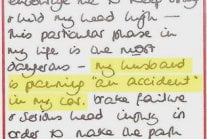 encourage me to keep going
& hold my head high –
this particular phase in
my life is the most
dangerous – my husband
is planning "an accident"
in my car. brake failure
& serious head injury in
order to make the path